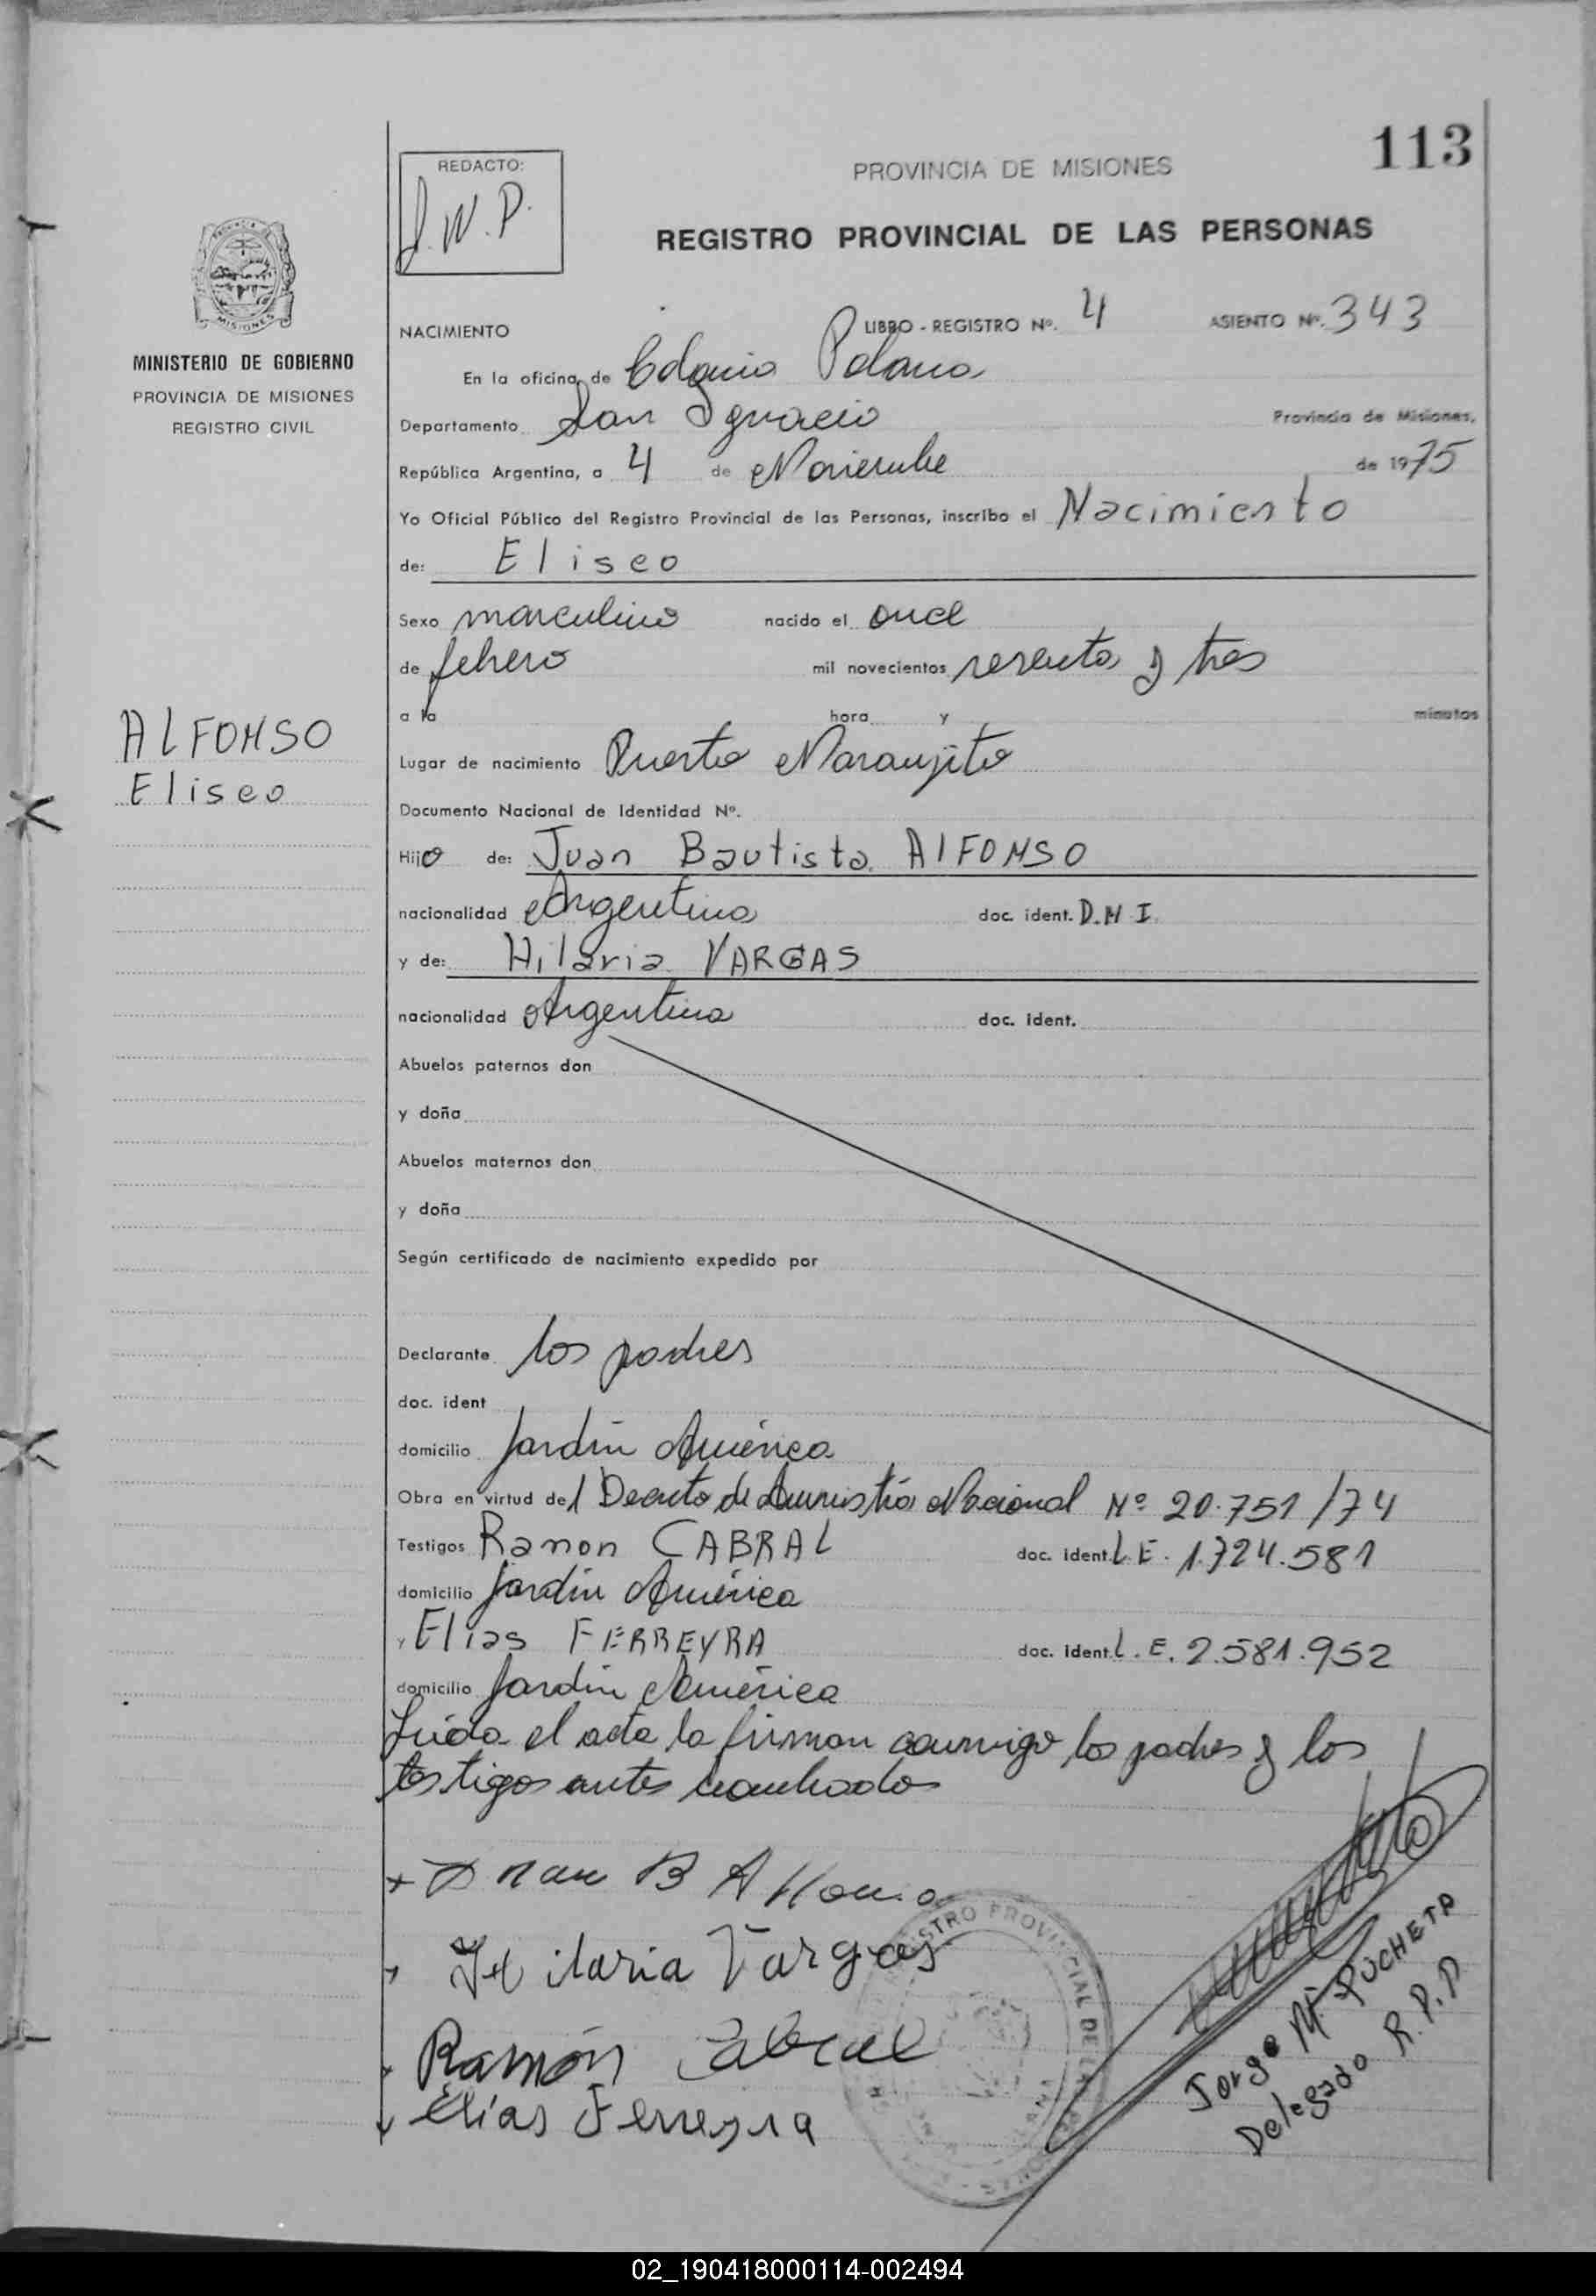 113
REDACTO:
J.W.P.
PROVINCIA DE MISIONES
REGISTRO PROVINCIAL DE LAS PERSONAS
MISIONES
MINISTERIO DE GOBIERNO
PROVINCIA DE MISIONES
REGISTRO CIVIL
NACIMIENTO LIBRO - REGISTRO Nº. 4 ASIENTO Nº. 343
En la oficina de Colonia Polana
Departamento San Ignacio Provincia de Misiones,
República Argentina, a 4 de Noviembre de 1975
Yo Oficial Público del Registro Provincial de las Personas, inscribo el Nacimiento
de: Eliseo
Sexo masculino nacido el once
de febrero mil novecientos sesenta y tres
a la hora y minutos
ALFONSO
Eliseo
Lugar de nacimiento Puerto Naranjito
Documento Nacional de Identidad Nº.
Hijo de: Juan Bautista ALFONSO
nacionalidad Argentina doc. ident. D.N.I.
y de: Hilaria VARGAS
nacionalidad Argentina doc. ident.
Abuelos paternos don
y doña
Abuelos maternos don
y doña
Según certificado de nacimiento expedido por
Declarante los padres
doc. ident
domicilio Jardín América
Obra en virtud del Decreto de Amnistía Nacional Nº 20.751/74
Testigos Ramon CABRAL doc. ident. L.E. 1.724.581
domicilio Jardín América
y Elias FERREYRA doc. ident. L.E. 2.581.952
domicilio Jardín América
Leída el acta la firman conmigo los padres y los
testigos antes nombrados
Juan B Alfonso
Hilaria Vargas
Ramón Cabral
Elías Ferreyra
REGISTRO PROVINCIAL DE LAS PERSONAS
Jorge Mº PUCHETA
Delegado R.P.P
02_190418000114-002494